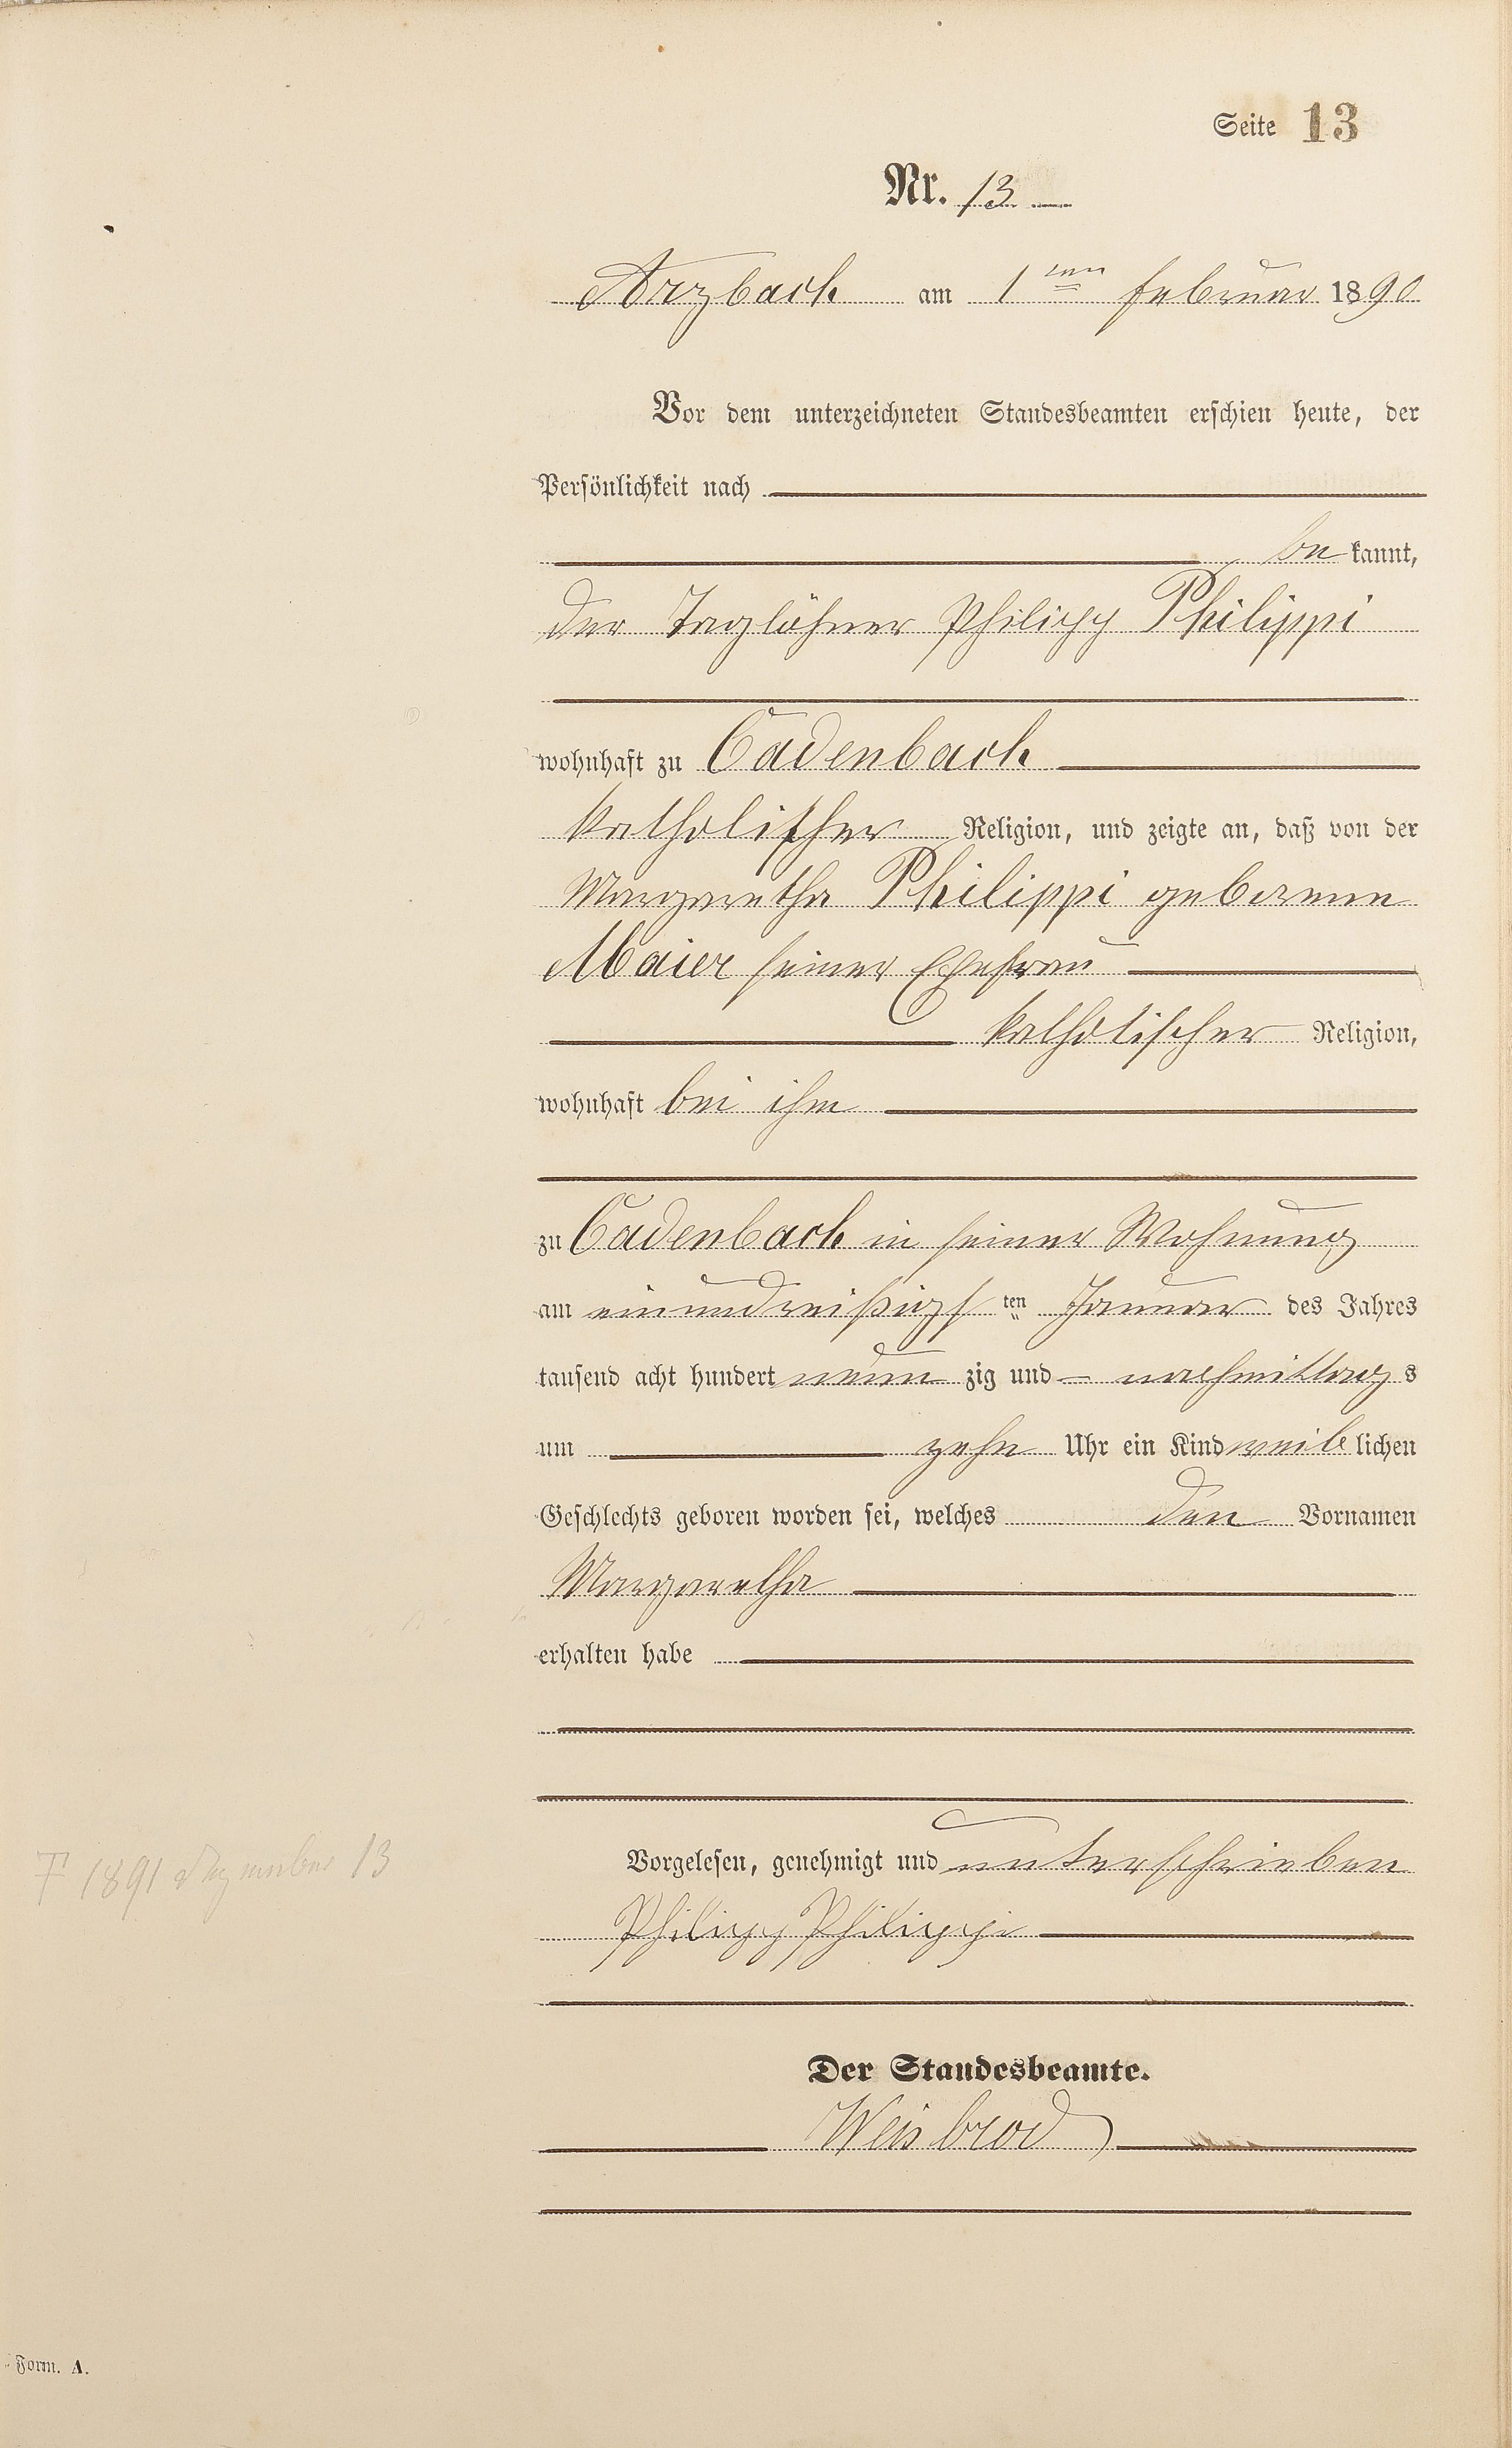 Seite 13
Nr. 13
Arzbach am 1ten Februar 1890
Vor dem unterzeichneten Standesbeamten erschien heute, der
Persönlichkeit nach
be kannt,
der Taglöhner Philipp Philippi
wohnhaft zu Cadenbach
katholischer Religion, und zeigte an, daß von der
Margaretha Philippi geborene
Maier seiner Ehefrau
katholischer Religion,
wohnhaft bei ihm
zu Cadenbach in seiner Wohnung
am einundreißigsten Januar des Jahres
tausend acht hundert neun zig und — nachmittags
um zehn Uhr ein Kind weiblichen
Geschlechts geboren worden sei, welches den Vornamen
Margaretha
erhalten habe
Vorgelesen, genehmigt und unterschrieben
Philipp Philippi
† 1891 Dezember 13
Der Standesbeamte.
Weisbrod
Form. A.